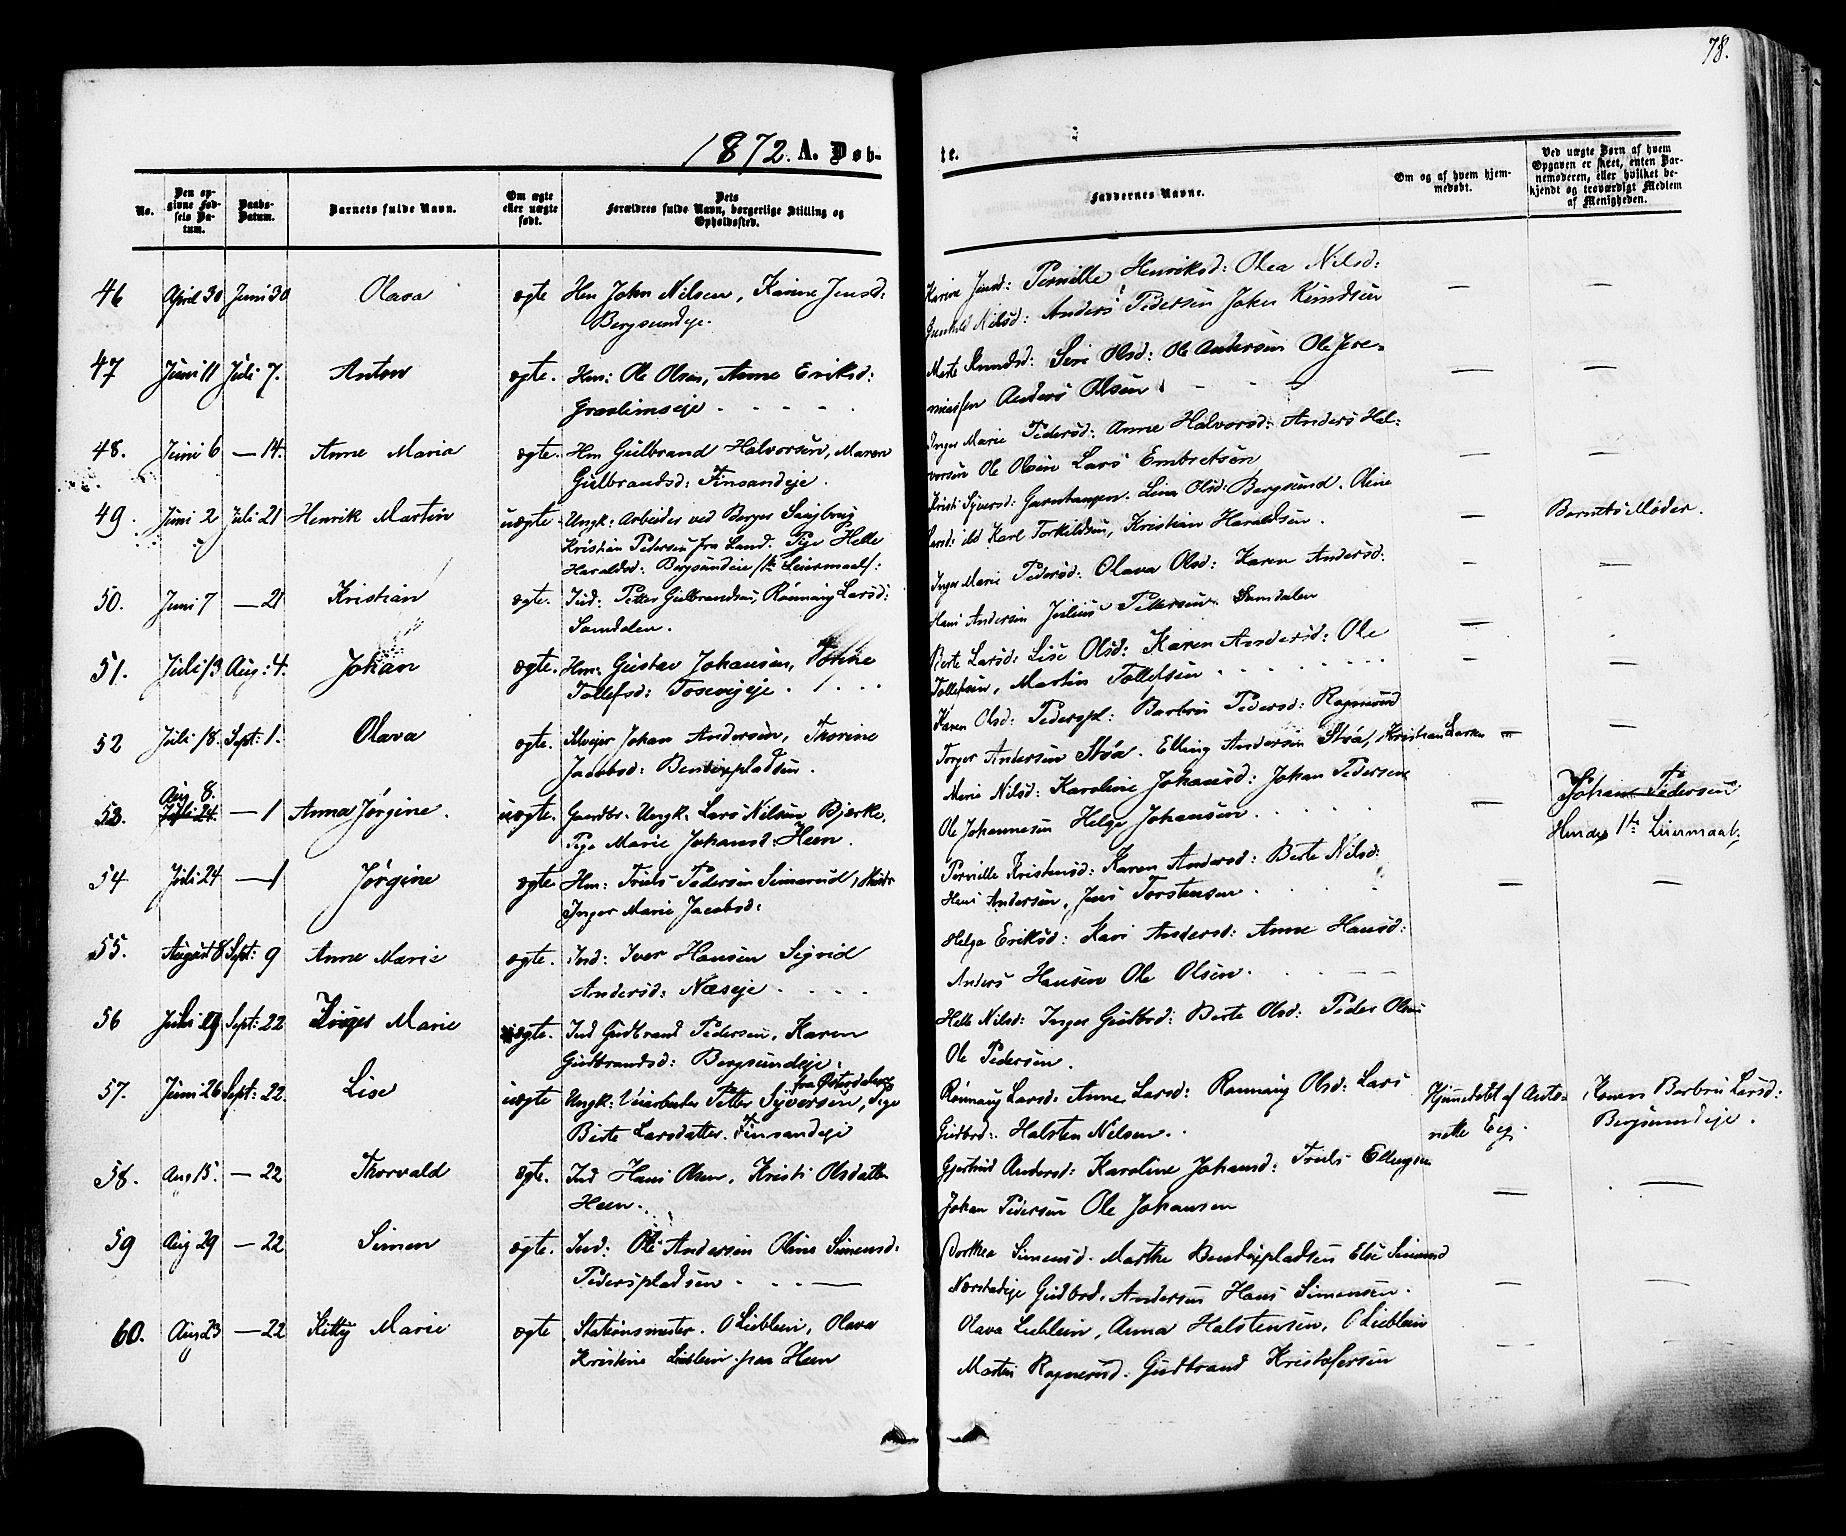 78.
1872. A. Døb-
te.
No.
Den op-
givne Fød-
sels Da-
tum.
Daabs-
Datum.
Barnets fulde Navn.
Om ægte
eller uægte
født.
Dets
Forældres fulde Navn, borgerlige Stilling og
Opholdssted.
Faddernes Navne.
Om og af hvem hjem-
medøbt.
Ved uægte Børn af hvem
Opgaven er skeet, enten Bar-
nemoderen, eller hvilket be-
kjendt og troværdigt Medlem
af Menigheden.
46 April 30 Juni 30 Olava ægte Hm John Nilsen, Karine Jensd:
Bergsundeje.
Karine Jensd: Pernille Henriksd: Olea Nilsd:
Gunhild Nilsd: Anders Pedersen Johan Knudsen
47 Juni 11 Juli 7. Anton ægte. Hm: Ole Olsen, Anne Eriksd:
Græslimseje
Marte Knudsd: Siri Olsd: Ole Andersen Ole Jere-
miassen Anders Olsen
48. Juni 6 — 14. Anne Maria ægte. Hm Gulbrand Halvorsen, Maren
Gulbrandsd: Finsandeje.
Inger Marie Pedersd: Anne Halvorsd: Anders Hal-
vorsen Ole Olsen Lars Embretsen
49. Juni 2 Juli 21 Henrik Martin uægte. Ungk: Arbeider ved Berger Saugbrug
Kristian Pedersen fra Land. Pige Helle
Haraldsd: Bergsundeie Leiermaal
Kristi Syversd: Garntangen. Lina Olsd: Bergsund. Oline
Larsd: Karl Torkildsen, Kristian Haraldsen.
Barnets Moder.
50. Juni 7 — 21 Kristian ægte. Ind: Petter Gulbrandsen, Rønnaug Larsd:
Samdalen.
Inger Marie Pedersd: Olava Olsd: Karen Andersd:
Hans Andersen Julius Pettersen Samdalen
51. Juli 13 Aug: 4. Johan ægte. Hm: Gustav Johansen,
Tollefsd: Tosevigeje.
Berte Larsd: Lise Olsd: Karen Andersd: Ole
Tollefsen, Martin Tollefsen
52 Juli 18. Sept: 1. Olava ægte. Selvejer Johan Andersen, Thorine
Jacobsd: Bentepladsen.
Karen Olsd: Pederspl: Barbru Pedersd: Ragnerud
Torger Andersen Støa. Elling Andersen Støa, Kristian Larsen
53. Aug 8. Juli 24. — 1 Anna Jørgine. uægte. Gaardbr. Ungk. Lars Nilsen Bjerke,
Pige Marie Johansd: Heen.
Marie Nilsd: Karoline Johansd: Johan Pedersen
Ole Johannesen Helge Johansen.
Johan Pedersen
Hendes 1te Leiermaal,
54 Juli 24 — 1 Jørgine ægte Hm: Truls Pedersen Simerud,
Inger Marie Jacobsd:
Pernille Kristensd: Karen Andersd: Berte Nilsd:
Hans Andersen, Jens Torstensen.
55. August 8 Sept: 9 Anne Marie ægte. Ind: Iver Hansen Sigrid
Andersd: Næseje
Helga Eriksd: Kari Andersd: Anne Hansd:
Anders Hansen Ole Olsen.
56 Juli 19 Sept: 22 Inger Marie ægte. Ind Gudbrand Pedersen, Karen
Gudbrandsd: Bergsundeje.
Helle Nilsd: Inger Gudbrd: Berte Olsd: Peder Olsen
Ole Pedersen.
57. Juni 26 Sept: 22. Lise uægte Ungk: Veiarbeider Petter Syversen, fra Østerdalen Pige
Berte Larsdatter. Finsandeje
Rønnaug Larsd: Anne Larsd: Rønnaug Olsd: Lars
Gudbrd: Halsten Nilsen.
Hjemmedøbt af Anto-
nette Eeg.
Konen Barbru Larsd:
Bergsundeje.
58. Aug 15. — 22 Thorvald ægte. Ind Hans Olsen, Kristi Olsdatter
Heen.
Gjertrud Andersd: Karoline Johansd: Truls Ellingsen
Johan Pedersen Ole Johansen
59 Aug 29 — 22 Simen ægte. Ind: Ole Andersen Oline Simensd:
Pederspladsen
Dorthea Simensd. Marthe Bentepladsen Else Simensd
Næsetadeje Gudbrd. Andersen Hans Simensen.
60. Aug 23 — 22 Kitty Marie ægte Stationsmester. O Lieblein, Olava
Kristine Lieblein paa Heen
Olava Lieblein, Anna Halstensen, O Lieblein
Martin Ragnerud. Gudbrand Kristofersen